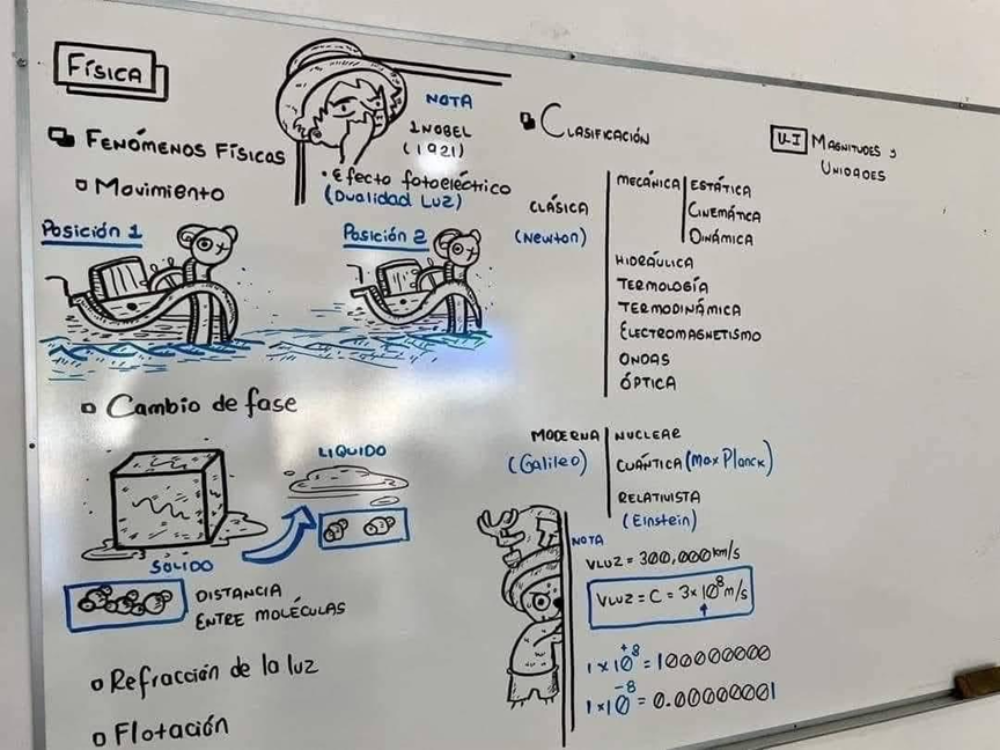 FÍSICA
FENÓMENOS FÍSICOS
Movimiento
Posición 1
Posición 2
NOTA
1NOBEL
(1921)
• Efecto fotoeléctrico
(Dualidad Luz)
Cambio de fase
LIQUIDO
SÓLIDO
DISTANCIA
ENTRE MOLÉCULAS
Refracción de la luz
Flotación
CLASIFICACIÓN
CLÁSICA
(Newton)
MECÁNICA
ESTÁTICA
CINEMÁTICA
DINÁMICA
HIDRÁULICA
TERMOLOGÍA
TERMODINÁMICA
ELECTROMAGNETISMO
ONDAS
ÓPTICA
MODERNA
(Galileo)
NUCLEAR
CUÁNTICA (Max Planck)
RELATIVISTA
(Einstein)
NOTA
VLUZ = 300,000 km/s
VLUZ = C = 3 × 10⁸ m/s
1 × 10⁺⁸ = 100000000
1 × 10⁻⁸ = 0.00000001
U-I MAGNITUDES y
UNIDADES